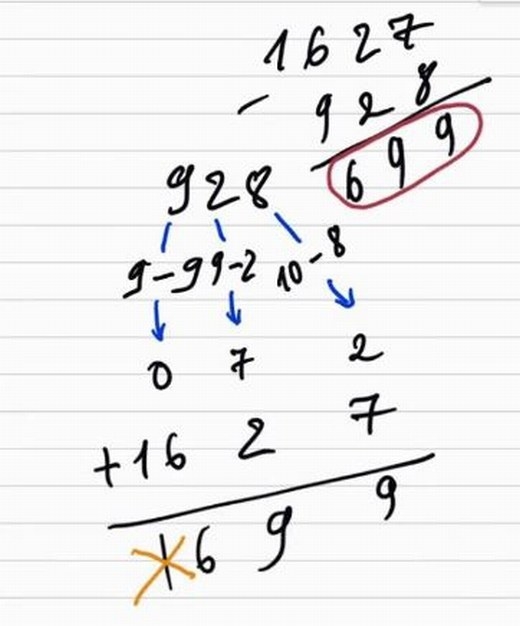 1627
- 928
699
928
9-9 9-2 10-8
0 7 2
+16 2 7
1 6 9 9